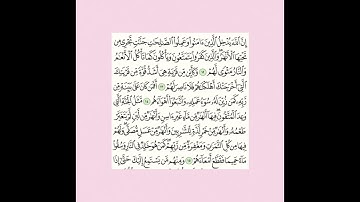 إِنَّ ٱللَّهَ يُدۡخِلُ ٱلَّذِينَ ءَامَنُواْ وَعَمِلُواْ ٱلصَّٰلِحَٰتِ جَنَّٰتٖ تَجۡرِي مِن
تَحۡتِهَا ٱلۡأَنۡهَٰرُۖ وَٱلَّذِينَ كَفَرُواْ يَتَمَتَّعُونَ وَيَأۡكُلُونَ كَمَا تَأۡكُلُ ٱلۡأَنۡعَٰمُ
وَٱلنَّارُ مَثۡوٗى لَّهُمۡ ١٢ وَكَأَيِّن مِّن قَرۡيَةٍ هِيَ أَشَدُّ قُوَّةٗ مِّن قَرۡيَتِكَ
ٱلَّتِيٓ أَخۡرَجَتۡكَ أَهۡلَكۡنَٰهُمۡ فَلَا نَاصِرَ لَهُمۡ ١٣ أَفَمَن كَانَ عَلَىٰ بَيِّنَةٖ مِّن
رَّبِّهِۦ كَمَن زُيِّنَ لَهُۥ سُوٓءُ عَمَلِهِۦ وَٱتَّبَعُوٓاْ أَهۡوَآءَهُم ١٤ مَّثَلُ ٱلۡجَنَّةِ ٱلَّتِي
وُعِدَ ٱلۡمُتَّقُونَۖ فِيهَآ أَنۡهَٰرٞ مِّن مَّآءٍ غَيۡرِ ءَاسِنٖ وَأَنۡهَٰرٞ مِّن لَّبَنٖ لَّمۡ يَتَغَيَّرۡ
طَعۡمُهُۥ وَأَنۡهَٰرٞ مِّنۡ خَمۡرٖ لَّذَّةٖ لِّلشَّٰرِبِينَ وَأَنۡهَٰرٞ مِّنۡ عَسَلٖ مُّصَفّٗىۖ وَلَهُمۡ
فِيهَا مِن كُلِّ ٱلثَّمَرَٰتِ وَمَغۡفِرَةٞ مِّن رَّبِّهِمۡۖ كَمَنۡ هُوَ خَٰلِدٞ فِي ٱلنَّارِ وَسُقُواْ
مَآءً حَمِيمٗا فَقَطَّعَ أَمۡعَآءَهُمۡ ١٥ وَمِنۡهُم مَّن يَسۡتَمِعُ إِلَيۡكَ حَتَّىٰٓ إِذَا